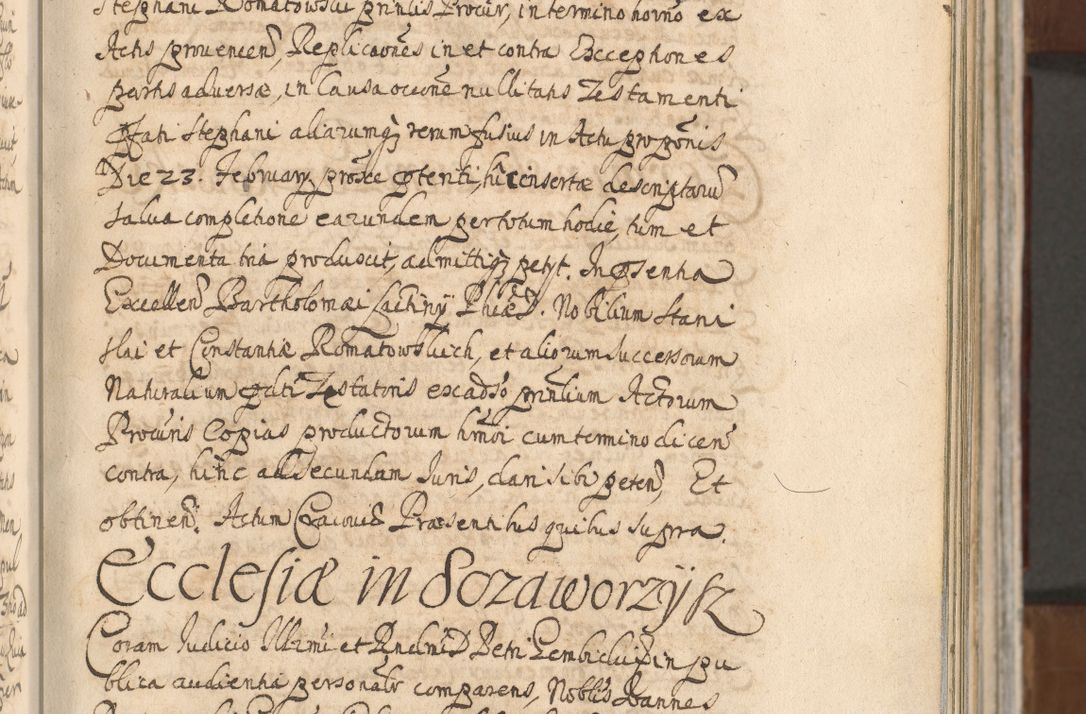 Stephani Romatowski prin̄lis Procur, in termino horno ex
Actis provenien̄, Replicaōnes in et contra Exceptiones
partis adversæ, in Causa occōne nullitatis Testamenti
Pfati Stephani aliarumq̨ rerum fusius in Actu propōnis
Die 23. February prōsce ptenti, hic insertæ descriptarū
salva completione earundem pertotum hodie, tum et
Documenta tria produxit, admittiq̨ petyt. In psentia
Excellen̄ Bartholomæi Lachiny Phiæ D. Nobilium Stani
slai et Constantiæ Romatowskich, et aliorum Successorum
Naturalium pdti Testatoris ex adso prin̄lium Actorum
Procuris Copias productorum hmōi cum termino dicen̄
contra, hinc ad Secundam Juris, dari sibi peten̄, Et
obtinen̄. Actum Cracoviæ Præsentibus quibus supra.
Ecclesiæ in Dozaworzysk
Coram Judicio Illrīmi et Rndnī D Petri Gembicki Ep in pu
blica audientia personalr comparens, Noblis Joannes